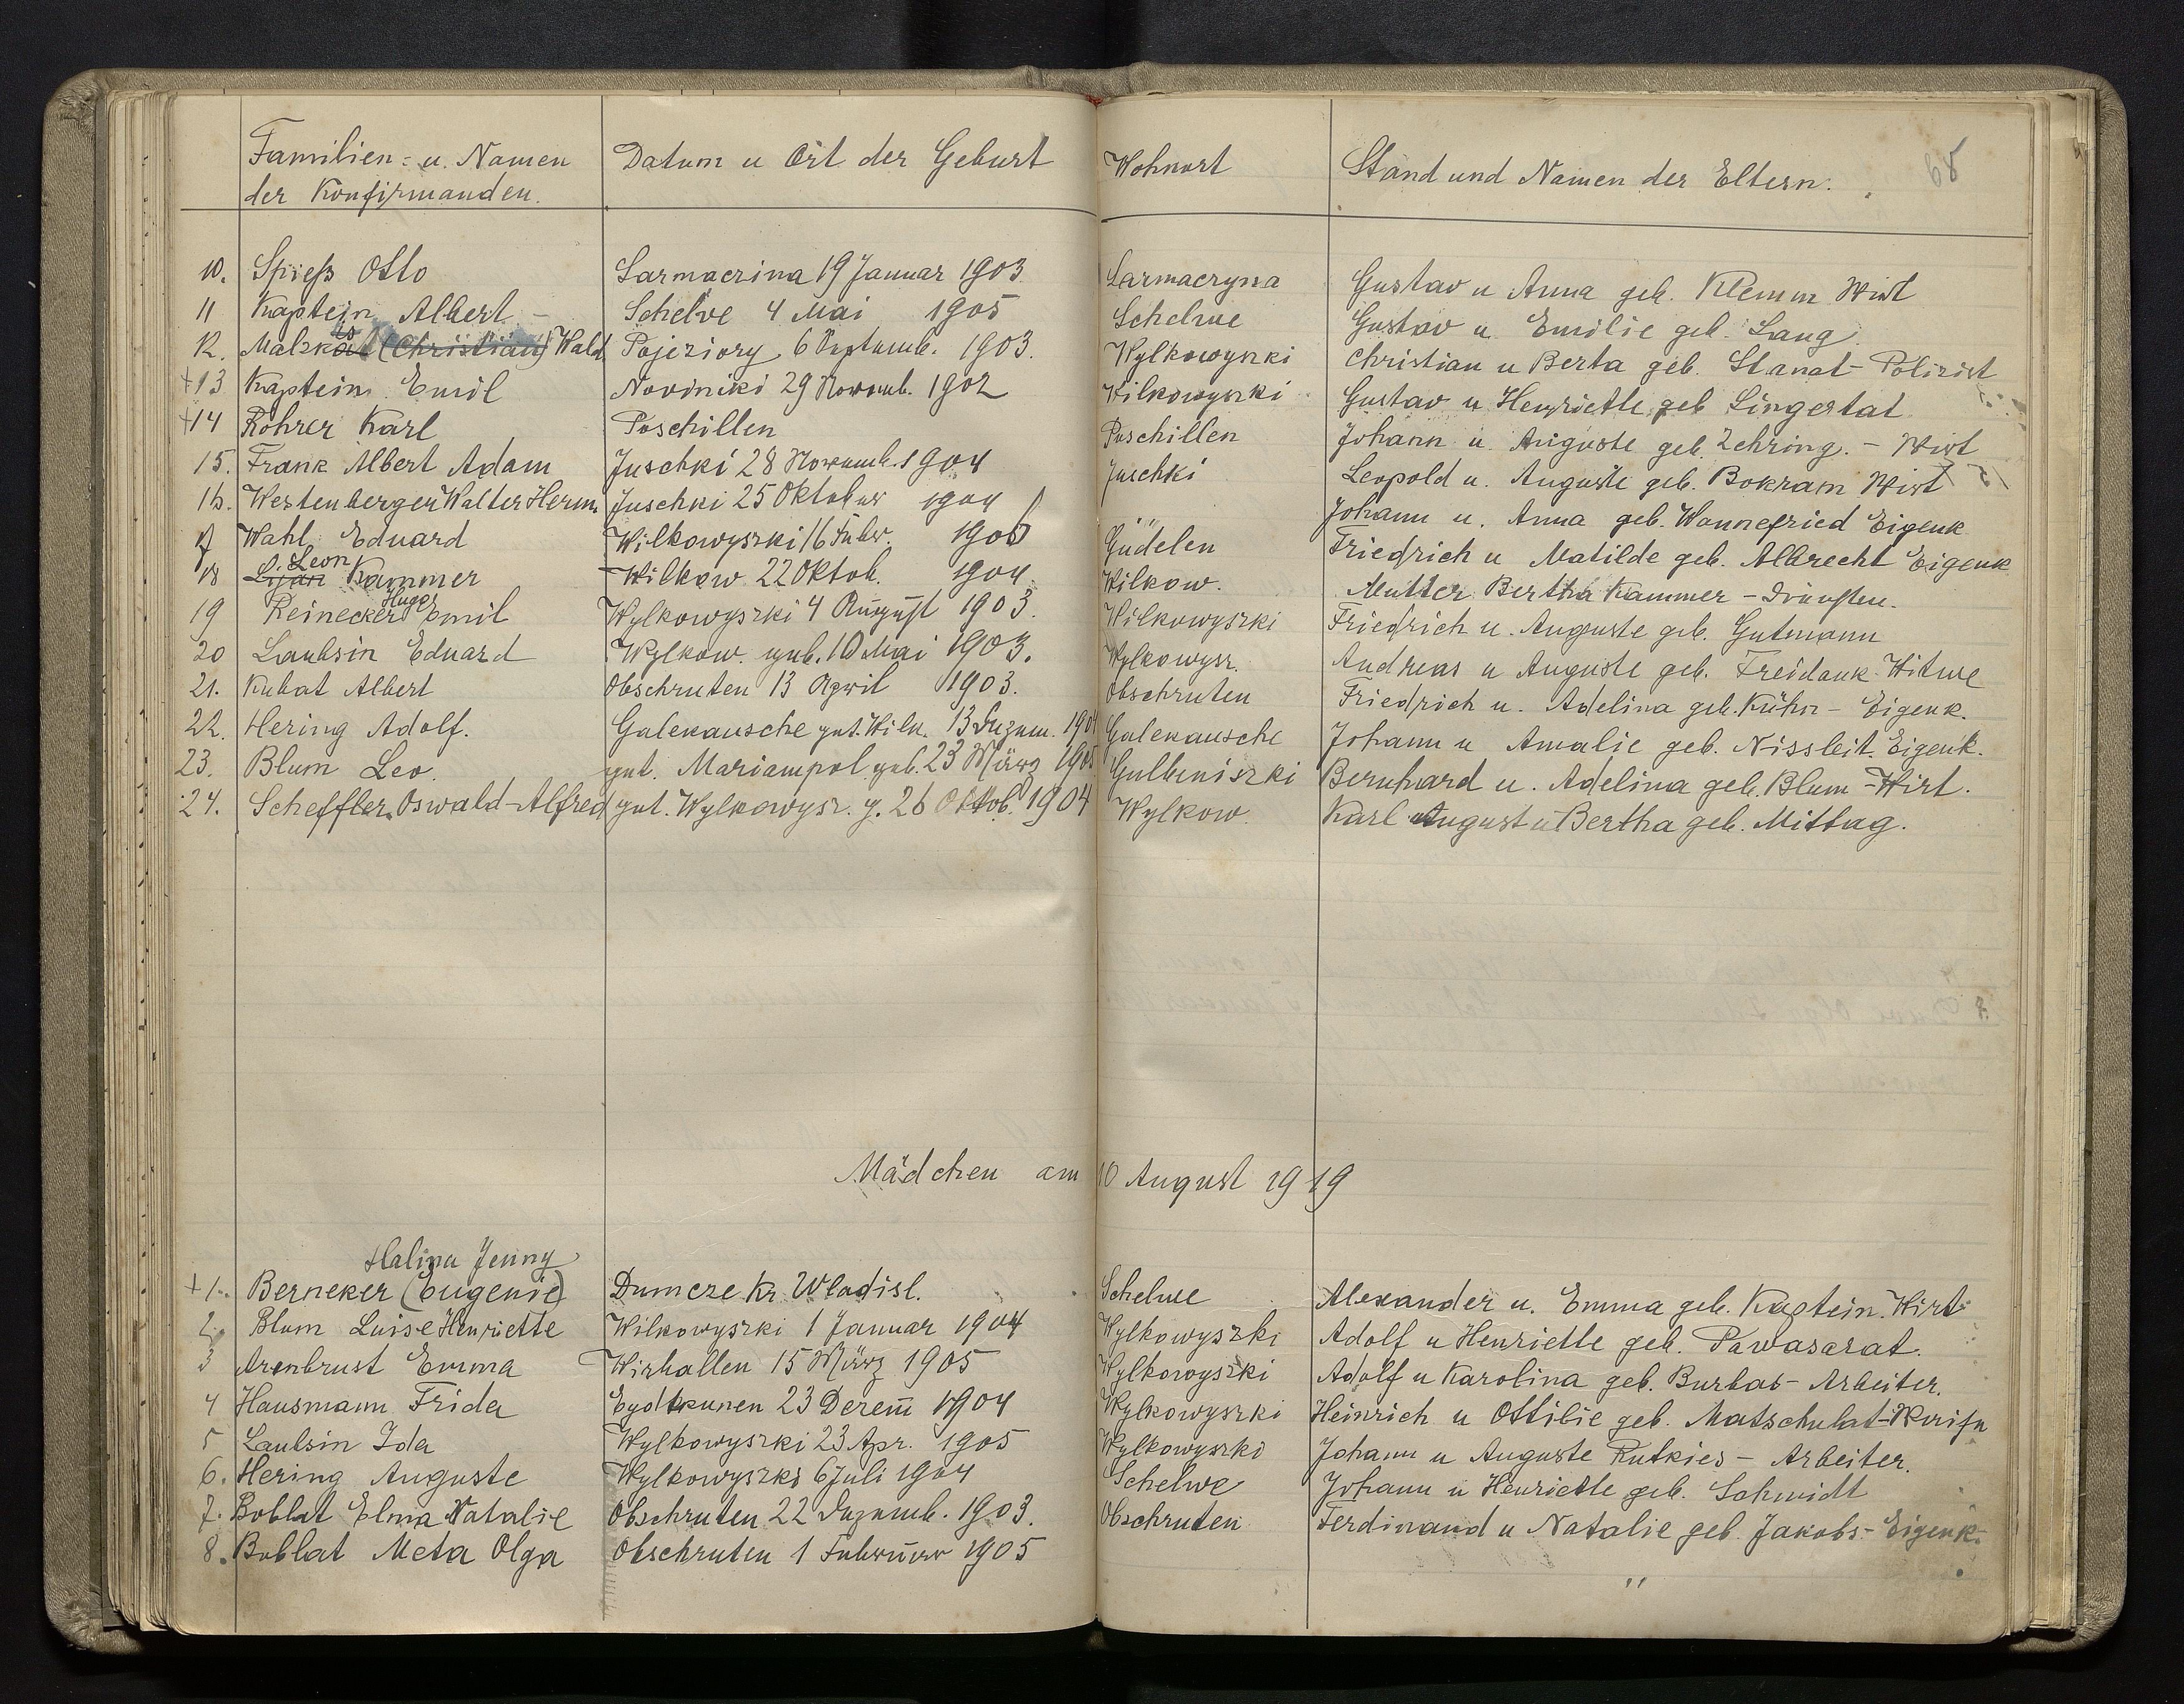 Familien- u. Namen der Konfirmanden. Datum u Ort der Geburt Wohnort Stand und Namen der Eltern. 68
10. Spieß Otto Sarmaczina 19 Januar 1903 Sarmaczyna Gustav u Anna geb. Klemm Wirt
11 Kaptein Albert - Schelve 4 Mai 1905 Schelwe Gustav u. Emilie geb. Lang.
12. Malzkat (Christian) Wald Pojeziory 6 Septemb. 1903. Wylkowyszki Christian u Berta geb. Stanat - Polizist
+13 Kaptein Emil Noviniki 29 Novemb. 1902 Wilkowyszki Gustav u Henriette geb Singertat
+14 Rohrer Karl Poschillen Poschillen Johann u. Auguste geb. Zehring. - Wirt
15. Frank Albert Adam Juschki 28 Novemb. 1904 Juschki Leopold u. Auguste geb. Bokram Wirt
16. Westenberger Walter Herm. Juschki 25 Oktober 1904 Johann u. Anna geb. Wannefried Eigenk
17 Wahl Eduard Wilkowyszki 16 Febr. 1905 Güdelen Friedrich u Matilde geb. Albrecht Eigenk
18 Lijan Leon Kammer Wilkow 22 Oktob. 1904 Wilkow. Mutter Bertha Kammer -
19 Reinecker Hugo Emil Wylkowyszki 4 August 1903. Wilkowyszki Friedrich u. Auguste geb. Gutmann
20 Laubsin Eduard Wylkow. geb. 10 Mai 1903. Wylkowysz. Andreas u Auguste geb. Freidank Witwe
21. Kubat Albert Obschruten 13 April 1903. Obschruten Friedrich u. Adelina geb. Kühn - Eigenk.
22. Hering Adolf. Galekausche get. Wilk. 13 Dezem. 1904 Galekausche Johann u Amalie geb. Nissleit. Eigenk.
23. Blum Leo. get. Mariampol geb. 23 März 1905 Gulbeniszki Bernhard u. Adelina geb. Blum - Wirt.
24. Scheffler Oswald-Alfred get. Wylkowysz. g. 26 Oktob. 1904 Wylkow. Karl August u Bertha geb. Mittag.
Mädchen am 10 August 1919
Halina Jenny
+1. Berneker (Eugenie) Dumcze Kr. Wladisl. Schelwe Alexander u. Emma geb. Kaptein. Wirt
2. Blum Luise Henriette Wilkowyszki 1 Januar 1904 Wylkowyszki Adolf u Henriette geb. Pawasarat.
3 Arenbrust Emma Wirballen 15 März 1905 Wylkowyszki Adolf u Karolina geb. Burbas - Arbeiter.
4 Hausmann Frida Eydtkunen 23 Dezem 1904 Wylkowyszki Heinrich u Ottilie geb. Matschulat -
5 Laubsin Ida Wylkowyszki 23 Apr. 1905 Wylkowyszki Johann u Auguste Rutkies - Arbeiter.
6. Hering Auguste Wylkowyszki 6 Juli 1904 Schelwe Johann u Henriette geb. Schmidt
7. Boblat Elma Natalie Obschruten 22 Dezemb. 1903. Obschruten Ferdinand u Natalie geb. Jakobs - Eigenk.
8. Boblat Meta Olga Obschruten 1 Februar 1905 "